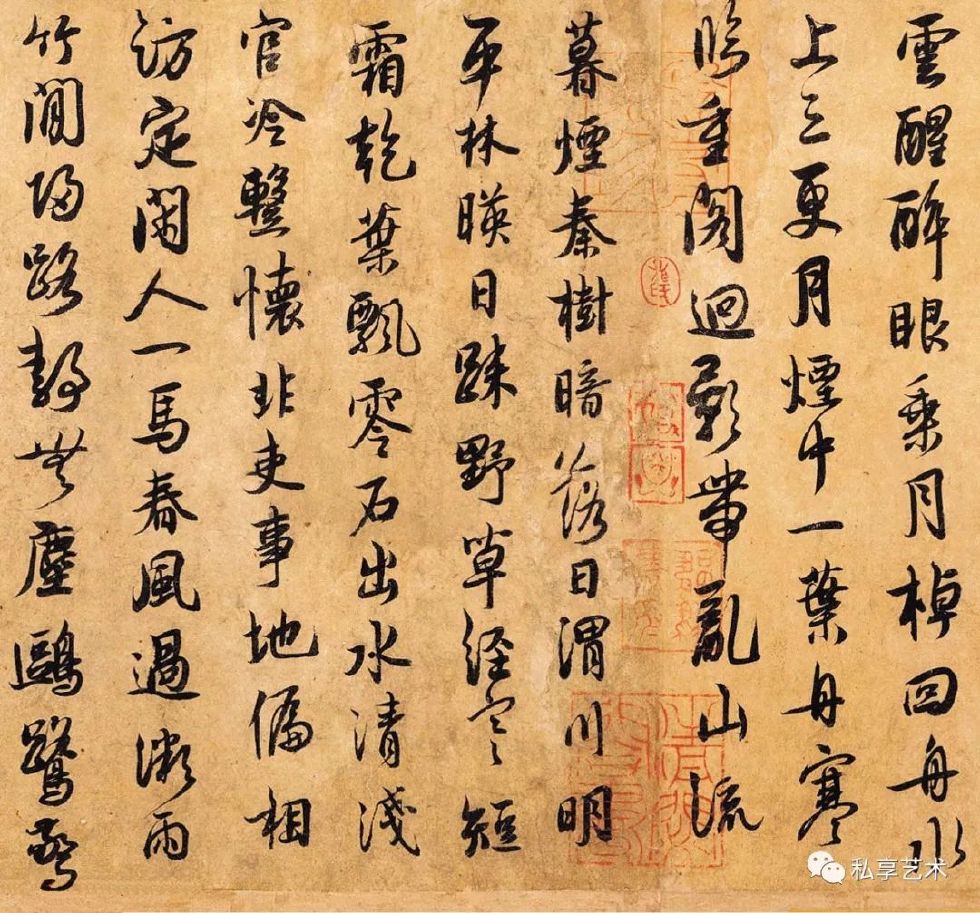 雲醒醉眼乘月棹回舟水
上三更月煙中一葉舟寒
重閣迥影帶亂山流
暮煙秦樹暗落日渭川明
平林暎日踈野草經寒短
霜乾葉飄零石出水清淺
官冷懷非吏事地偏相
訪定閑人一馬春風過微雨
竹間歸路靜無塵鷗鷺驚
私享艺术